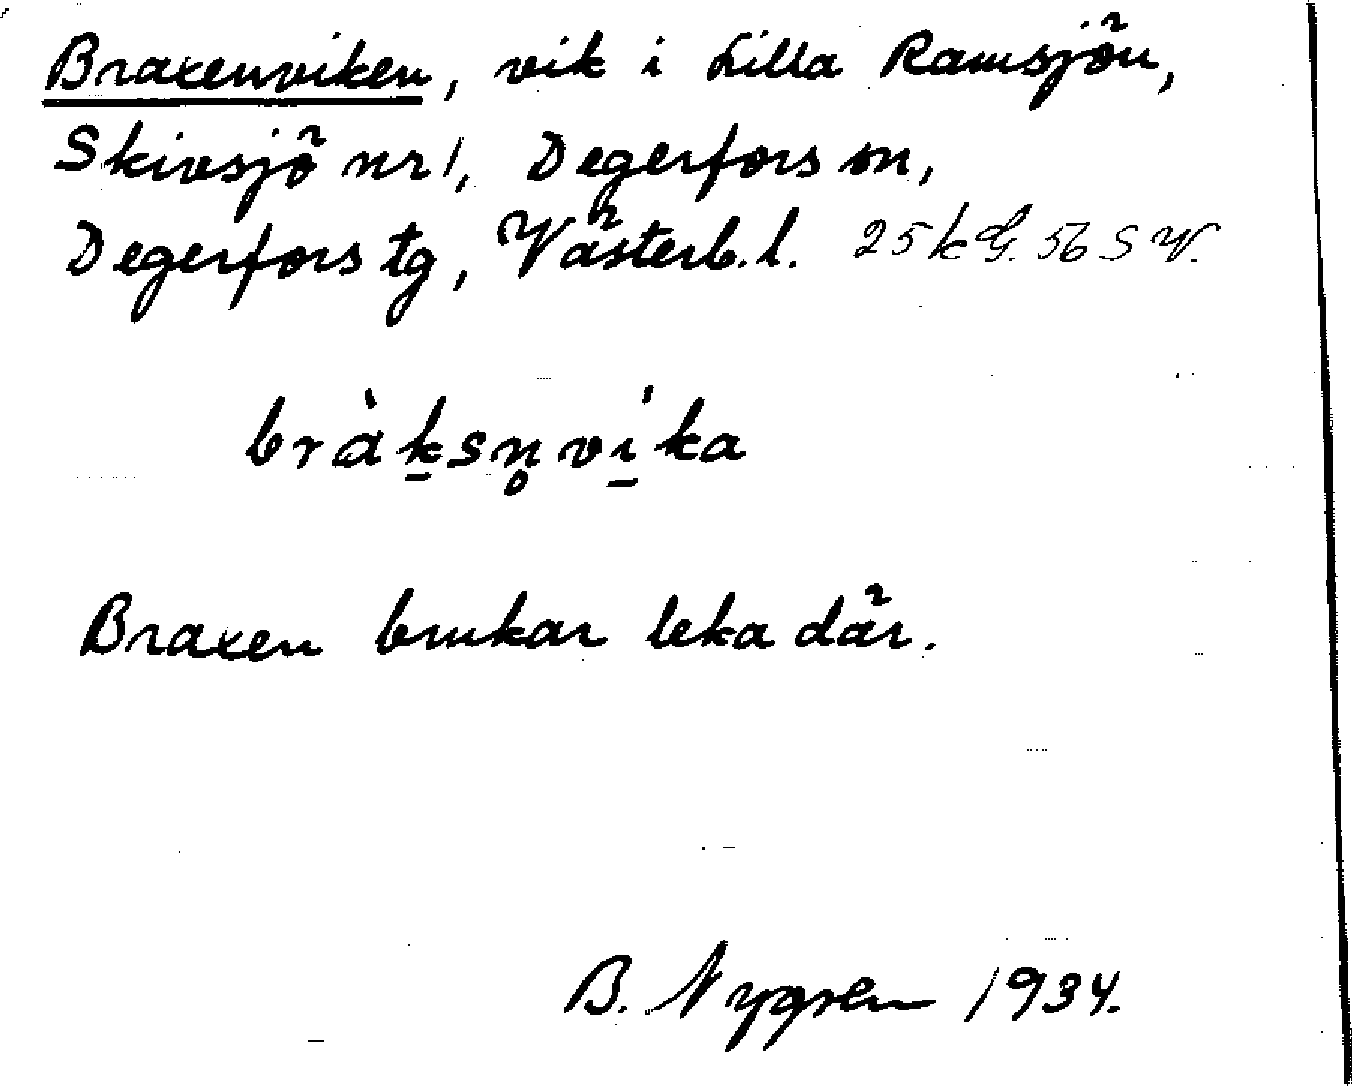 Braxenviken, vik i Lilla Ramsjön,
Skivsjö nr 1, Degerfors sn,
Degerfors tg, Västerb. l. 25 k G. 56 S W.
bràk̲sn̥vi̲̍ka
Braxen brukar leka där.
B. Nygren 1934.